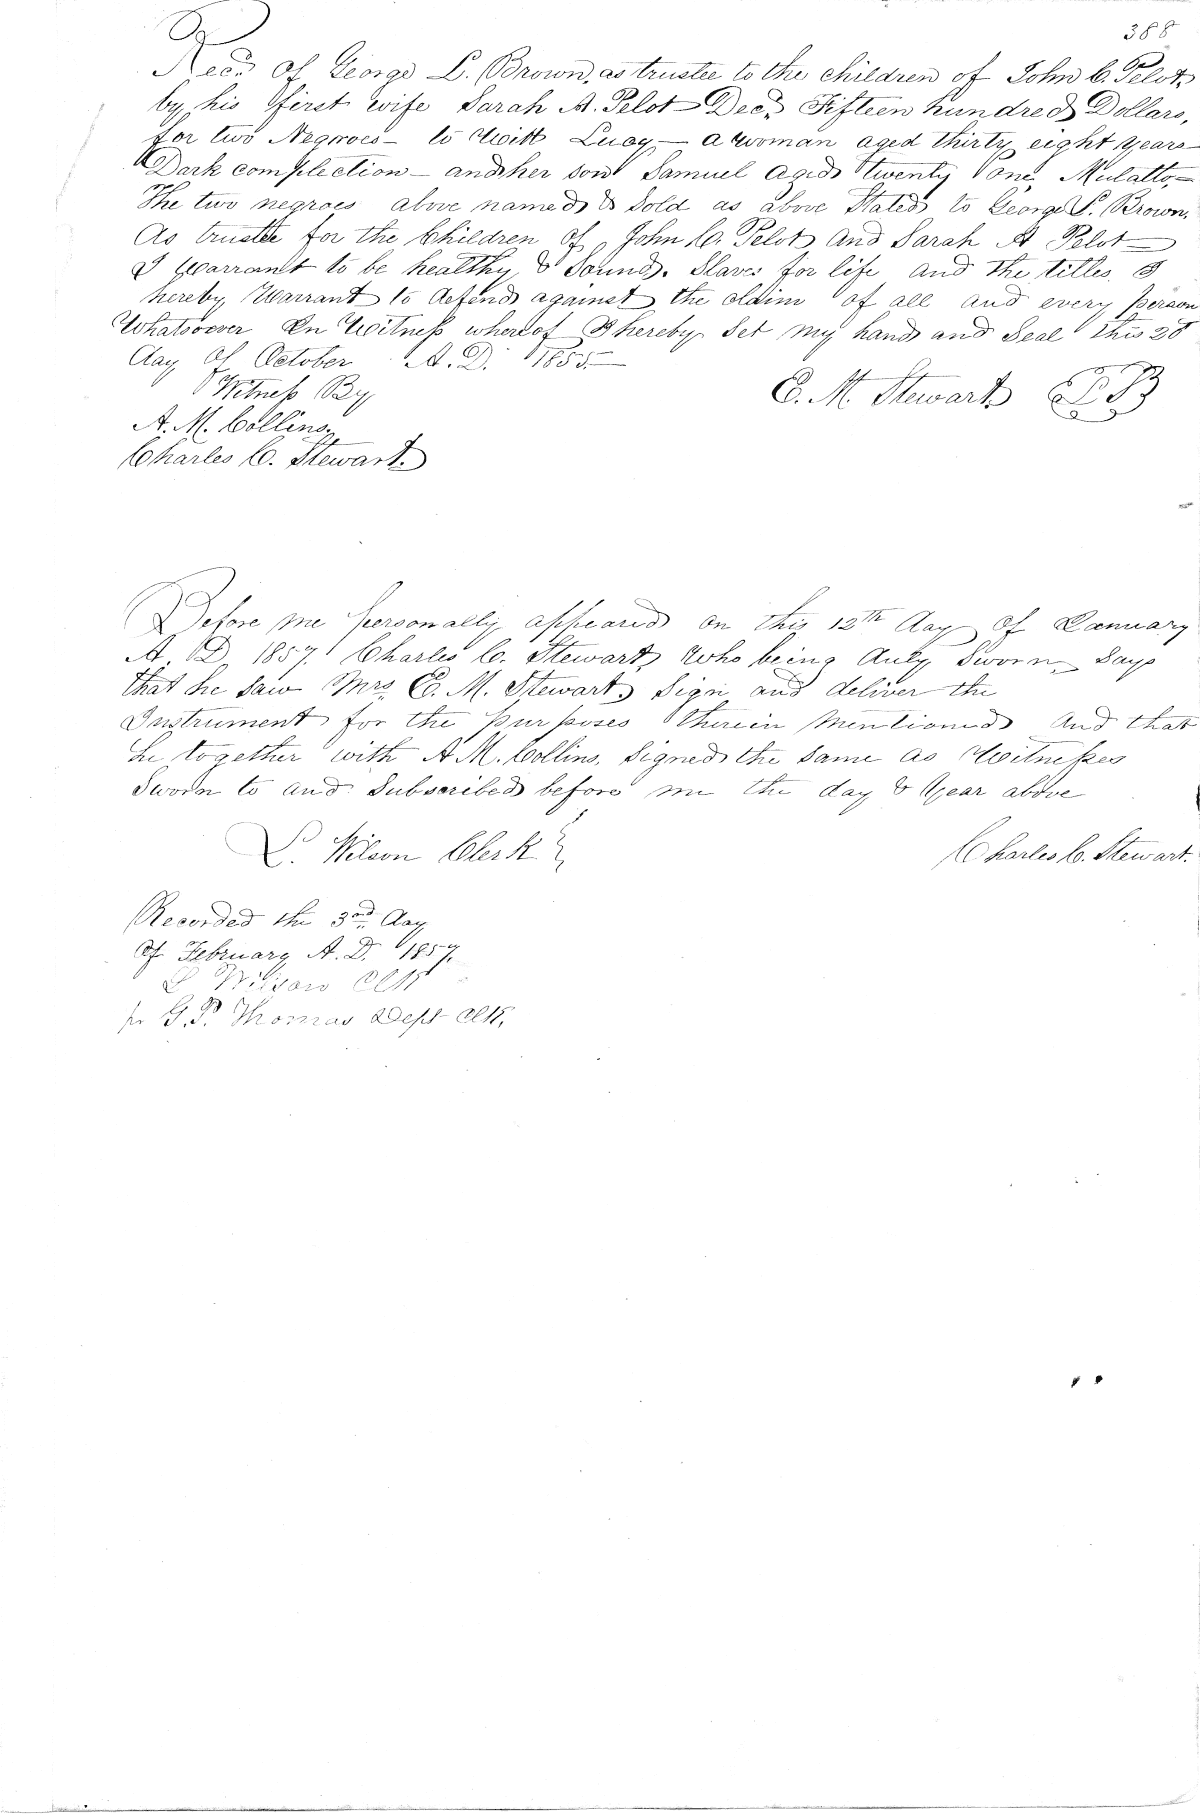 388
Recd. Of George L. Brown, as trustee to the children of John C. Pelot,
by his first wife Sarah A. Pelot - Decd. Fifteen hundred Dollars,
for two Negroes - to Witt Lucy - a woman aged thirty eight years -
Dark complection - and her son Samuel aged twenty one, Mulatto, -
The two negroes above named & Sold as above Stated to George L. Brown.
As trustee for the Children of John C. Pelot and Sarah A Pelot -
I Warrant to be healthy & Sound. Slaves for life and the titles I
hereby Warrant to defend against the claim of all and every person
Whatsoever In Witness whereof I hereby Set my hand and Seal this 28
day of October A. D. 1855. -
Witness By
E. M. Stewart
A. M. Collins.
Charles C. Stewart.
Before me personally appeared on this 12th day of January
A. D. 1857. Charles C. Stewart, Who being duly Sworn Says
that he saw Mrs. E. M. Stewart, Sign and deliver the
Instrument for the purposes therein mentioned and that
he together with A M. Collins, signed the same as Witnesses
Sworn to and Subscribed before me the day & year above
L. Wilson Clerk
Charles C. Stewart.
Recorded the 3rd day
Of February A. D. 1857.
L Wilson Clk
pr G. P. Thomas Dept Clk.